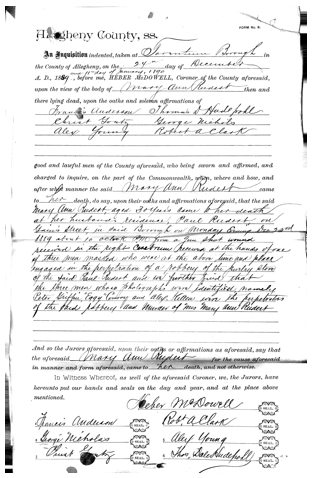 FORM No. 9.
Allegheny County, ss.
An Inquisition indented, taken at Borough in
the County of Allegheny, on the 24th day of December
and 11th day of January, 1890
A. D., 1889, before me, HEBER McDOWELL, Coroner of the County aforesaid,
upon the view of the body of Mary Ann Rudert then and
there lying dead, upon the oaths and solemn affirmations of
Francis Anderson Thomas D
Christ George Nicholas
Alex Young Robert A Clark
good and lawful men of the County aforesaid, who being sworn and affirmed, and
charged to inquire, on the part of the Commonwealth, when, where and how, and
after what manner the said Mary Ann Rudert came
to her death, do say, upon their oaths and affirmations aforesaid, that the said
Mary Ann Rudert, aged 30 years came to her death
at her husband's residence, Paul Rudert on
Street in said Borough on Monday Evening Dec 23rd
1889 about 10 oclock PM from a gun shot wound
received in the right at the hands of one
of three men masked who were at the above time and place
engaged in the perpetration of a robbery of the store
of the said Paul Rudert and we further find that
the three men whose photographs were identified, namely
Peter Griffin, and Alex Killen were the perpetrators
of the said robbery and Murder of Mrs Mary Ann Rudert
And so the Jurors aforesaid, upon their oaths or affirmations as aforesaid, say that
the aforesaid Mary Ann Rudert for the cause aforesaid
in manner and form aforesaid, came to her death, and not otherwise.
In Witness Whereof, as well of the aforesaid Coroner, as, the Jurors, have
hereunto put our hands and seals on the day and year, and at the place above
mentioned.
Heber McDowell SEAL
Francis Anderson SEAL Robt A Clark SEAL
George Nicholas SEAL Alex Young SEAL
Christ SEAL Thos. SEAL